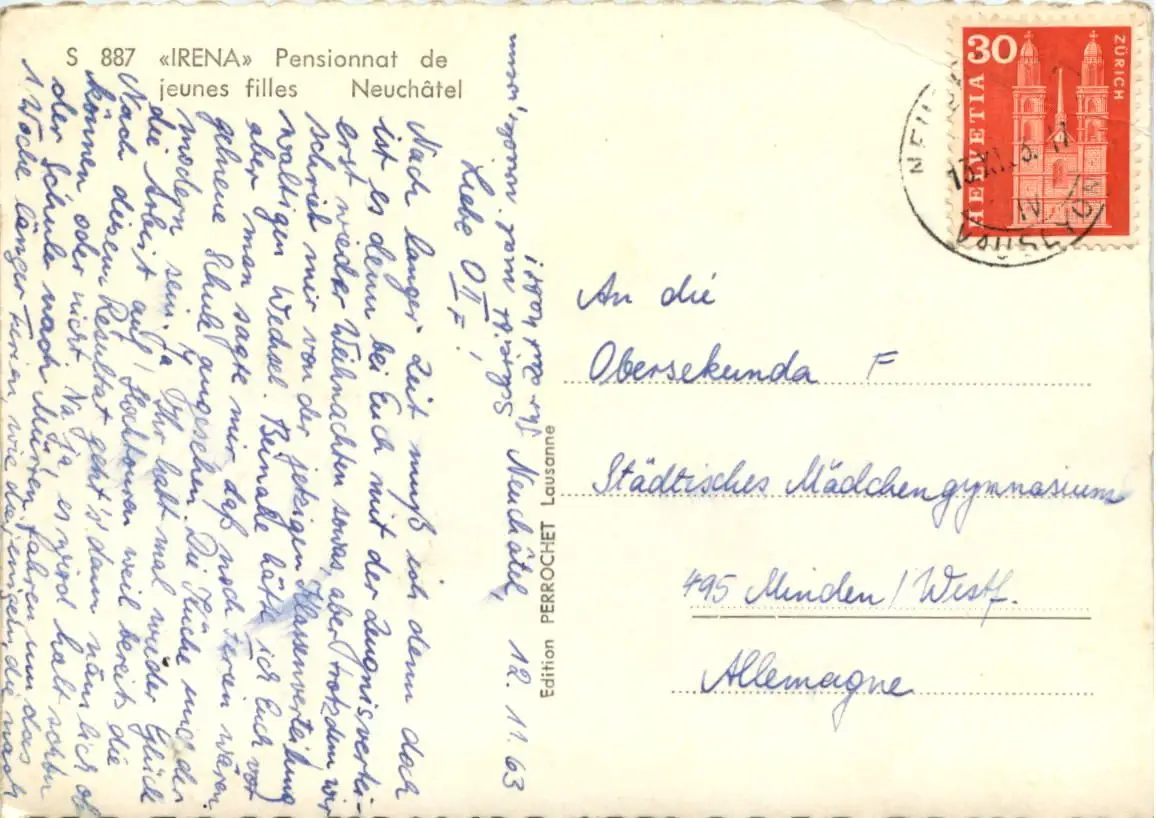 S 887 «IRENA» Pensionnat de
jeunes filles Neuchâtel
Neuchâtel, 12.11.63
Liebe OIIF!
Nach langer Zeit muß ich denn doch
ist es denn bei Euch mit der Zeugnisvertei-
erst wieder Weihnachten sowas, aber trotzdem wir
schrieb mir von der jetzigen Klassenverteilung
waltigen Wechsel. Beinahe hätt' ich Euch vor
aber man sagte mir daß noch Ferien wären
gehene Schule angesehen. Die Küche und der
modern sein. Ja, Ihr habt mal wieder Glück
die Arbeit auf Hochtouren weil bereits die
Nach diesem Resultat geht's dann nämlich ob
können oder nicht. Na ja, es wird halt schon
der Schule nach Mürren fahren um das
1 Woche länger Ferien, wie diejenigen, die nach
An die
Obersekunda F
Städtisches Mädchengymnasium
495 Minden/Westf.
Allemagne
Edition PERROCHET Lausanne
HELVETIA
30
ZÜRICH